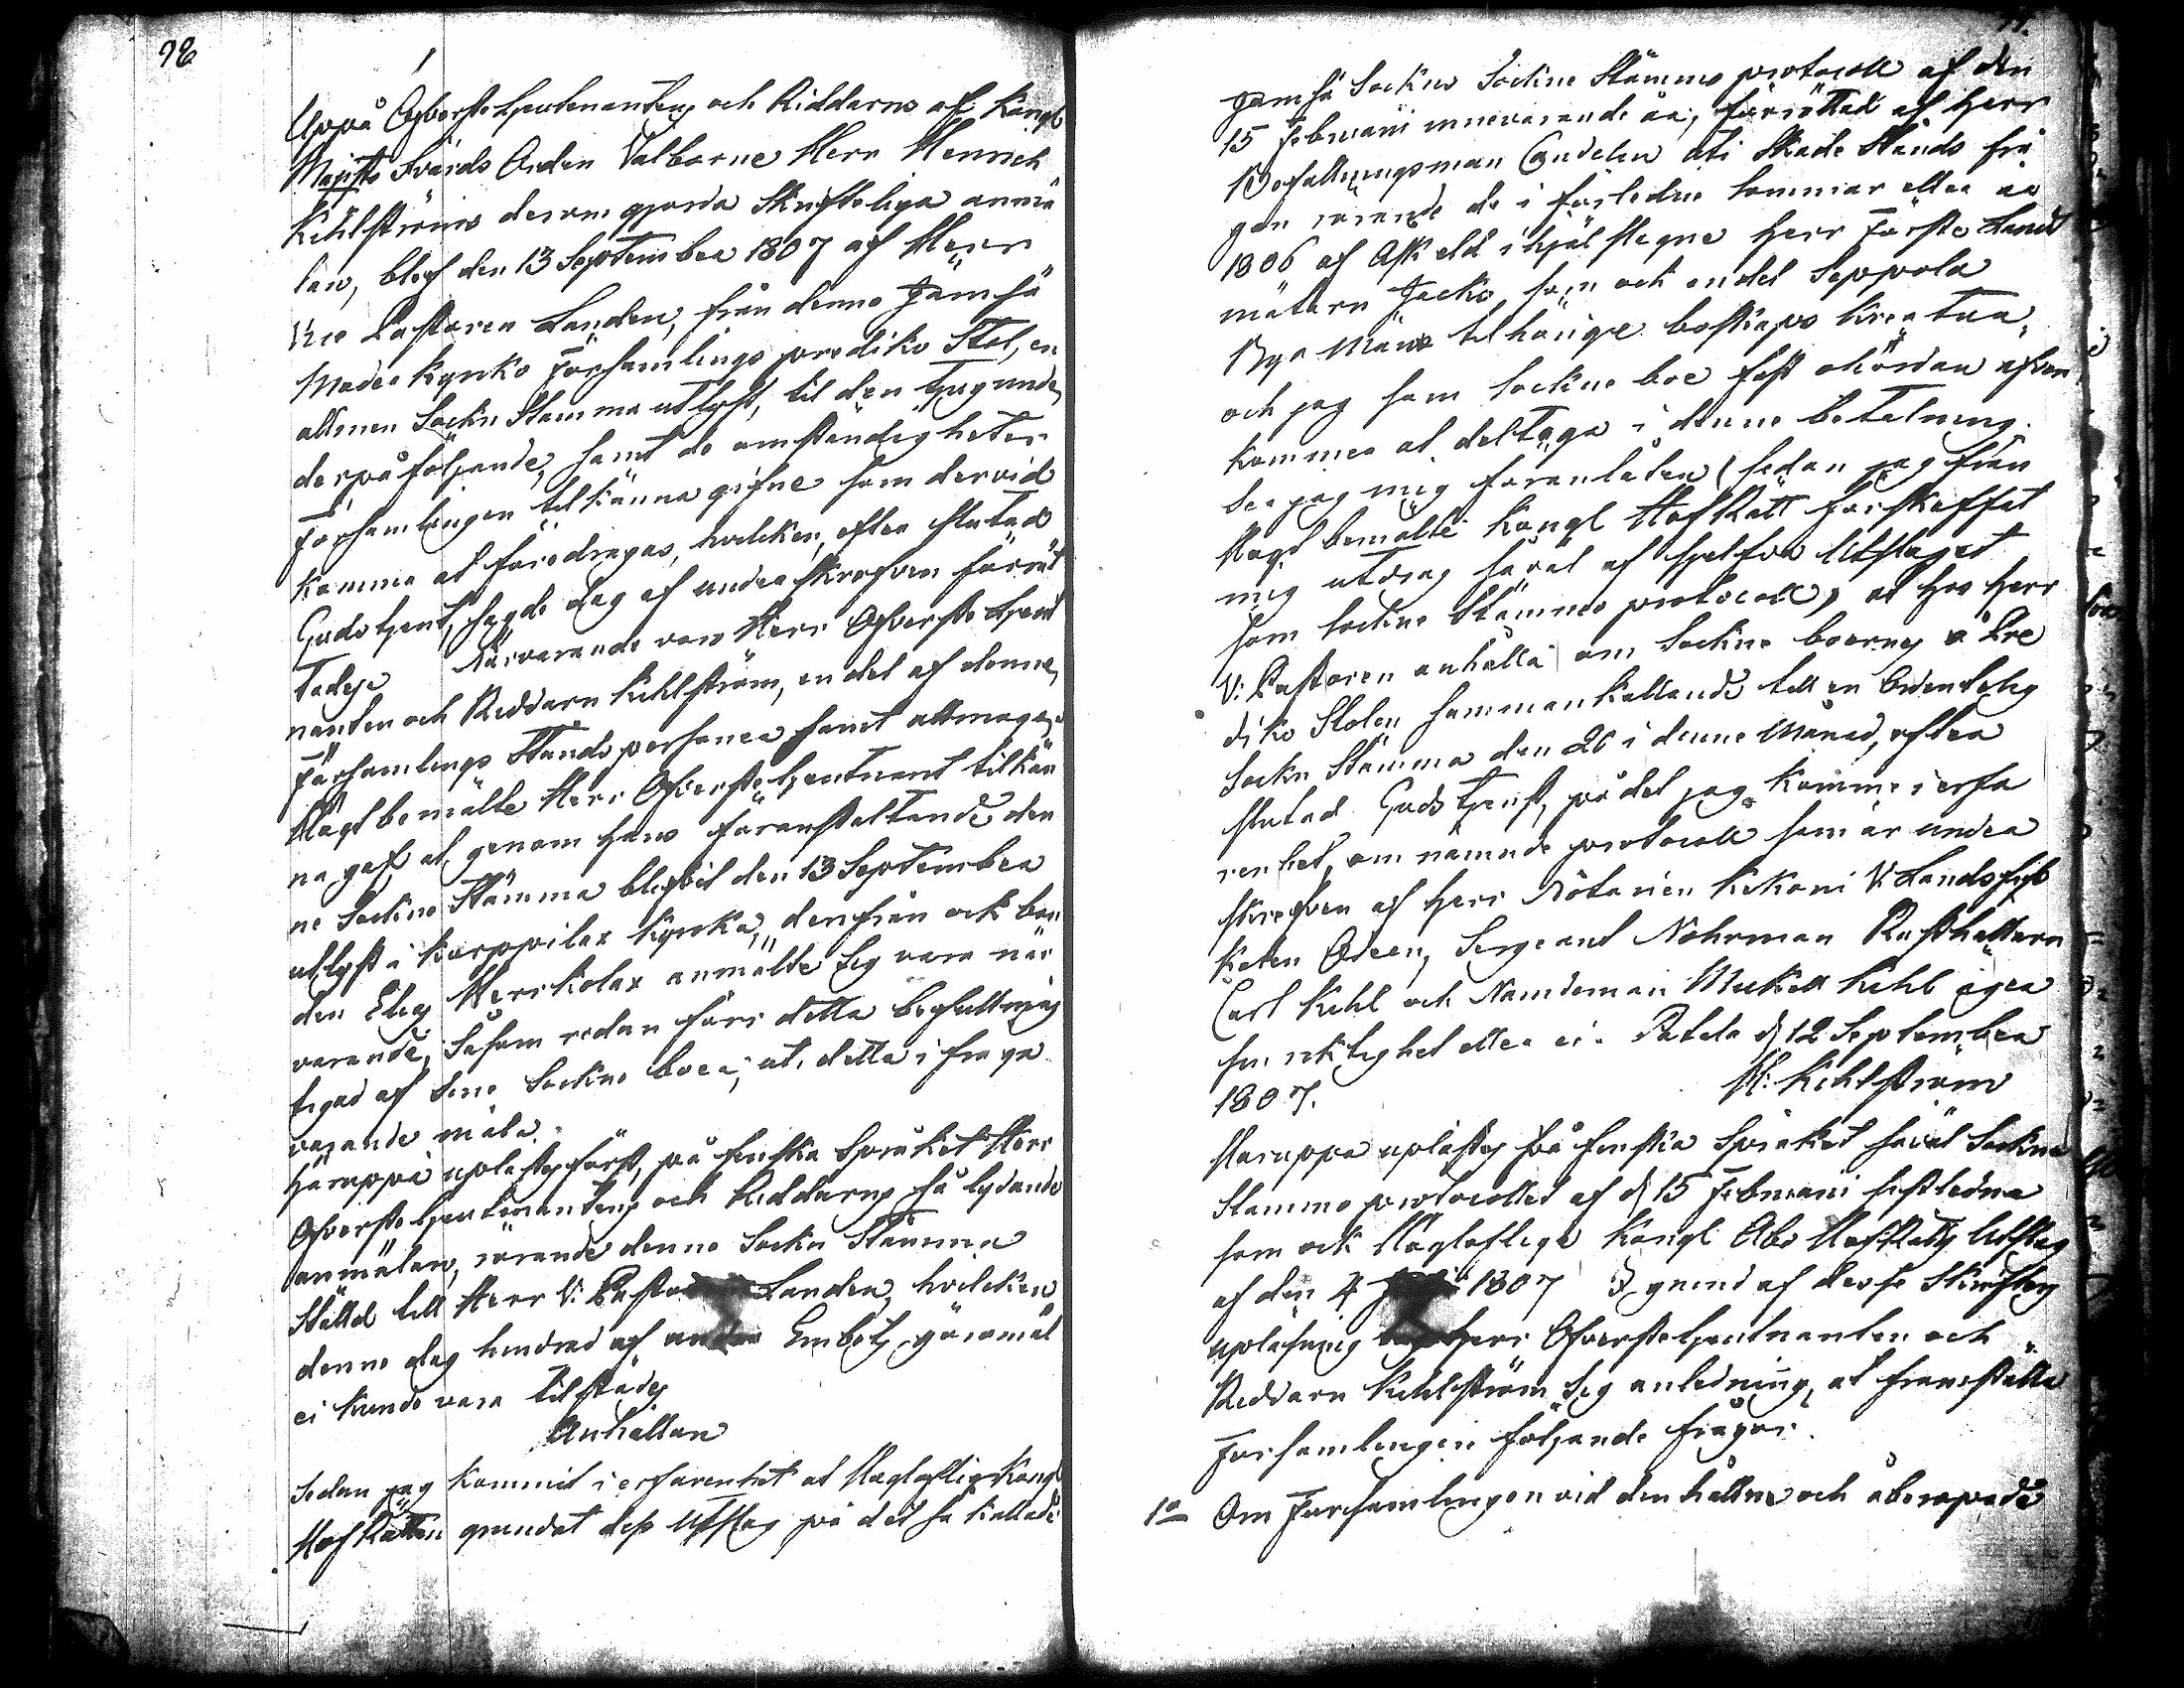 98
Uppå Öfverste Lieutenantens och Riddarns af Kongl
Majsts Svärds Orden Valborne Herr Henrich
Kihlströms derom gjorda Skrifteliga anmä
lan, blef den 13 September 1807 af Herr
Vice Pastoren Landen, från denne Jämsä
Moder Kyrko Församlings prediko Stol, en
allmen Sockn Stamma utlyst, til den tjugunde
derpå följande, samt de omständigheter
Församlingen til känna gifne som dervid
komma at föredragas, hvilken, efter slutad
Gudstjenst, sagde dag af underskrefven förrät
tades Närvarande voro Herr Öfverste Lieut
nanten och Riddarn Kihlström, en del af denne
Församlings Stånds personer samt allmoge,
Högtbemälte Herr Öfverste Lieutnant tilkän
na gaf at genom hans föranstaltande den
ne Sockne Stämma blifvit den 13 September
utlyst i Korppilax Kyrka, derifrån ock bon
den Elg Herrkolax anmälte sig vara när
varande, Såsom redan förr detta befullmäg
tigad af sine Sockne boer, uti detta i fråga
varande måla.
Häruppå uplästes först, på finska Språket Herr
Öfverste Lieutenantens och Riddarns så lydande
anmälan, rörande denne Sockn Stämma
Ställd till Herr V: Pastor Landen, hvilken
denne dag hindrad af andra Embets göromål
ei kunde vara tilstädes
Anhållan
Sedan jag kommit i erfarenhet at Högloflig Kongl
HofRätten grundat dess Utslag på det så kallade
Jamsä Sockns Sockne Stämmo protocoll af den
15 Februarii innevarande år, förrättad af Herr
Befallningsman Candelin uti Skade Stånds frå
gan rörande de i förledne sommar eller år
1806 af Åsk eld ihjäl slagne Herr Förste Landt
mätarn Jacks som ock en del Seppola
Bya Mäns tilhörige boskaps kreatur,
och jag som sockne boe fast ohördan äfven
kommer at deltaga i denne betalning.
Ser jag mig föranlåten (sedan jag från
Högt bemälte Kongl HofRätt förskaffat
mig utdrag såväl af sielfva Utslaget
som sockne Stämmo protocoll) at hos Herr
V: Pastoren anhålla om Sockne boernes å Pre
diko Stolen sammankallande till en Ordentelig
Sockn Stämma den 20 i denne Månad, efter
slutad Gudstjenst, på det jag komme i erfa
renhet, om nämnde protocoll som är under
skrefven af Herr Notarien Kekoni V. Landsfis
kalen Odeen, Sergeant Nohrman Rusthållarn
Carl Kihl och Nämdeman Mickell Kihl äger
sin riktighet eller ei. Patala d 12 September
1807.
H: Kihlström
Haruppå uplästes på finska Språket såväl Sockne
Stämmo protocollet af d 15 Februarii sistledne
som ock Högloflige Kongl Åbo HofRätts Utslag
af den 4 1807 I grund af desse Skrifters
upläsning Herr Öfverste Lieutnanten och
Riddarn Kihlström sig anledning, at framställa
Församlingen följande frågor.
1o Om Församlingen vid den hållne och åberopade